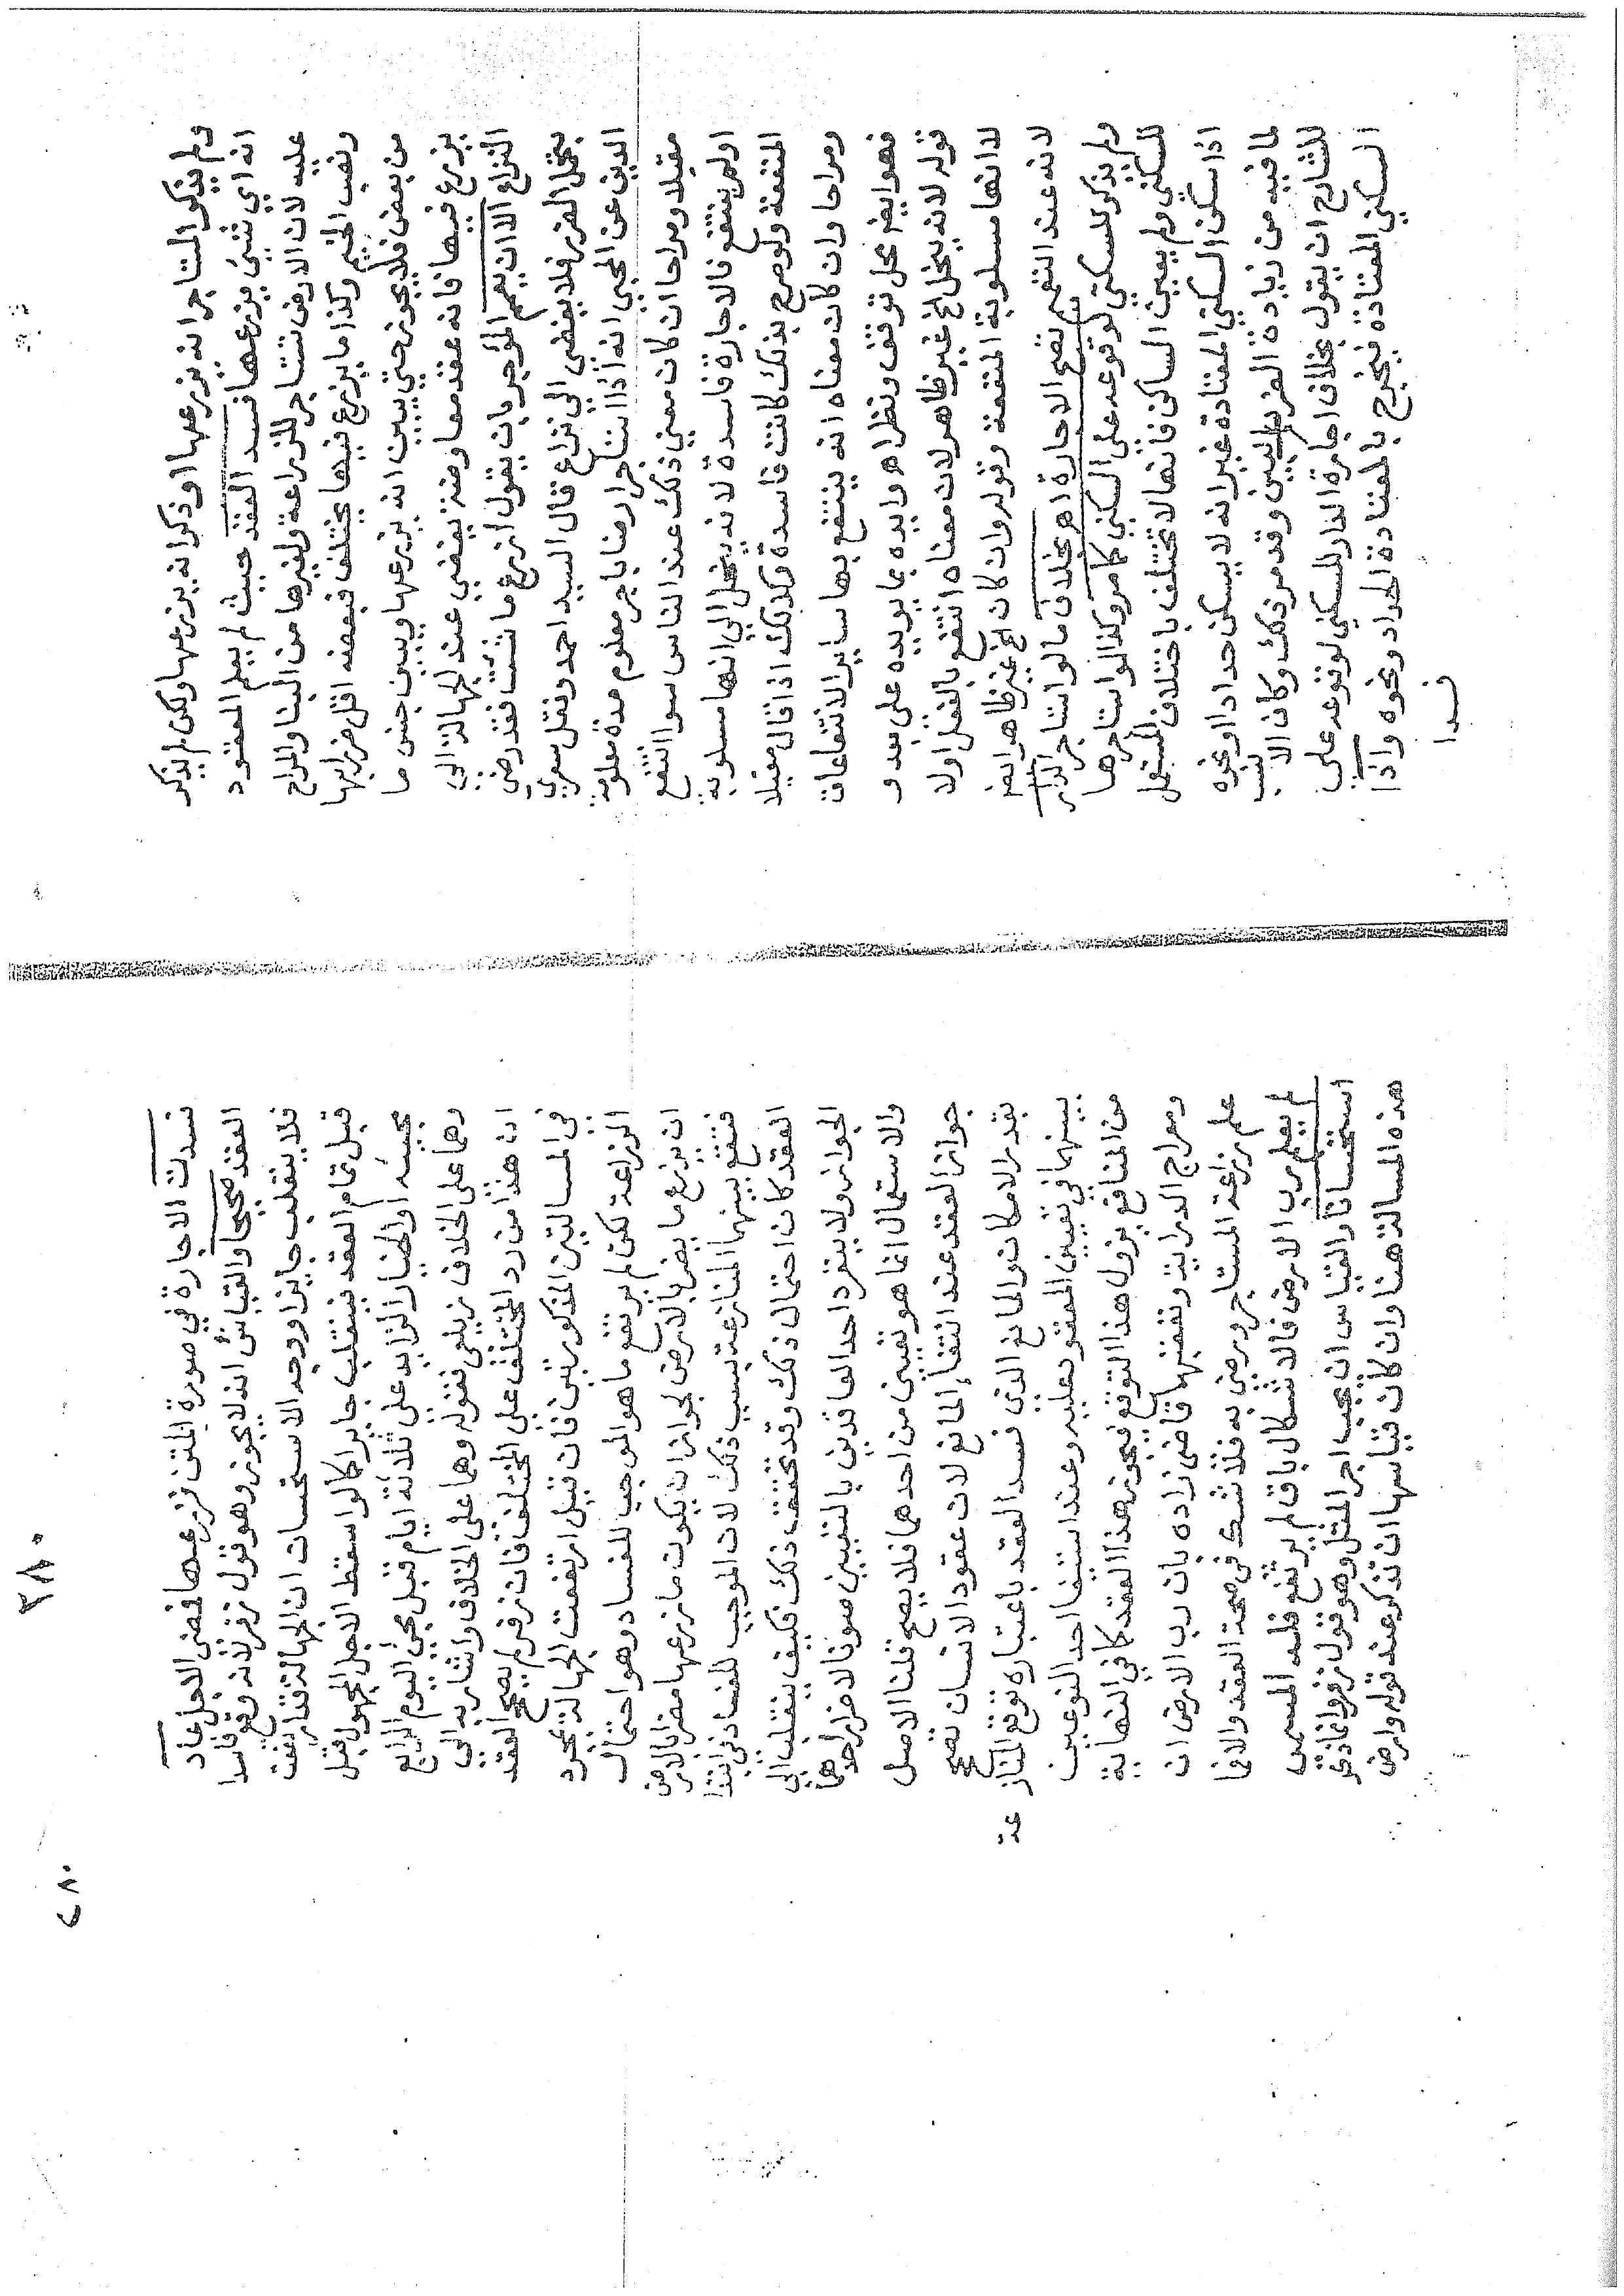 ولم يذكر المستاجر انه يزرعها او ذكر انه يزرعها ولكن لم يذكر
انه اي شيئ يزرعها فسد العقد حيث لم يعلم المعقود
عليه لان الارض تستاجر للزراعة ولغيرها من البنا والمراح
ونصب الخيم وكذا ما يزرع فيها يختلف فبعضه اقل ضررا بها
من بعض فلا يجوز حتي يبين انه يزرعها ويبين جنس ما
يزرع فيها فانه عقد معاوضة يفضي عند الجهالة الي
النزاع الا ان يعمم المؤجر بان يقول ازرع ما شئت فقد رضي
بتحمل الضرر فلا يفضي الي نزاع قال السيد احمد ونقل سعدي
الدين عن المجبي انه اذا استاجر ارضا باجر معلوم مدة معلومة
مقيلا ومراحا ان كان معني ذلك عند الناس سوا انتفع
اولم ينتفع فالاجارة فاسدة لانه يخل الي انها مسلوبة
المنفعة ولو صرح بذلك كانت فاسدة وكذلك اذا قال مقيلا
ومراحا وان كان معناه انه ينتفع بها ساير الانتفاعات
فهو ايض محل توقف ونظر اهـ وايده بما يويده علي بعد و
قوله لانه يخل الخ غير ظاهر لان معناه انتفع بالفعل اولا
لا انها مسلوبة المنفعة وقوله وان كان الخ غير ظاهر ايض
لانه عند التعميم تصح الاجارة اهـ بخلاف ما لو استاجر الدار
ولم يذكر للسكني لوقوعه علي السكني كما مر وكذا لو استاجرها
للسكني ولم يعين الساكن فانها لا تختلف باختلاف المستعمل
اذا سكن السكني المعتادة غير انه لا يسكن حدادا او نحوه
لما فيه من زيادة الضرر البين وقد مر ذلك وكان الانسب
للشارح ان يقول بخلاف اجارة الدار للسكني لوقوعه علي
السكني المعتادة فيخرج بالمعتادة الحداد ونحوه واذا
فسدا
فسدت الاجارة في صورة المتن فزرعها فمضي الاجل عاد
العقد صحيحا والقياس انه لا يجوز وهو قول زفر لانه وقع فاسدا
فلا ينقلب جايزا ووجه الاستحسان ان الجهالة قد ارتفعت
قبل تمام العقد فينقلب جايزا كما لو اسقط الاجل المجهول قبل
مجيئه او الخيار الزايد علي ثلاثة ايام قبل مجيئ اليوم الرابع
وهما علي الخلاف زيلعي فقوله وهما علي الخلاف واشار به الي
ان هذا من رد المختلف علي المختلف فان زفر لم يصحح العقد
في المسالتين المذكورتين فان قيل ارتفعت الجهالة بمجرد
الزراعة لكن لم يرتفع ما هو الموجب للفساد وهو احتمال
ان يزرع ما يضر بالارض لجواز ان يكون ما زرعها مضرا بالارض
فتقع بينهما المنازعة بسبب ذلك لان الموجب للفساد في ابتدا
العقد كان احتمال ذلك وقد تحقق ذلك فكيف ينقلب الي
الجواز ولا ينفرد احد العاقدين بالتعيين صونا لاضرار احدهما
والاستعمال انما هو تعيين من احدهما فلا يصح قلنا الاصل
جواز العقد عند انتفاء المانع لان عقود الانسان تصح
بقدر الامكان والمانع الذي فسد العقد باعتباره توقع المنازعة
بينهما في تعيين المعقود عليه وعند استيفا احد النوعين
من المنافع يزول هذا التوقع فيجوز هذا العقد كما في النهاية
ومعراج الدراية وتعقبها قاضي زاده بان رب الارض ان
علم زراعة المستاجر ورضي به فلا شك في صحة العقد والا فما
لم يعلم رب الارض فالاشكال باق لم يرتفع فله المسمي
استحسانا والقياس ان يجب اجر المثل وهو قول زفر وانما ذكر
هذه المسالة هنا وان كان قياسها ان تذكر عند قوله وارض
٢٨٠
٢٨٠